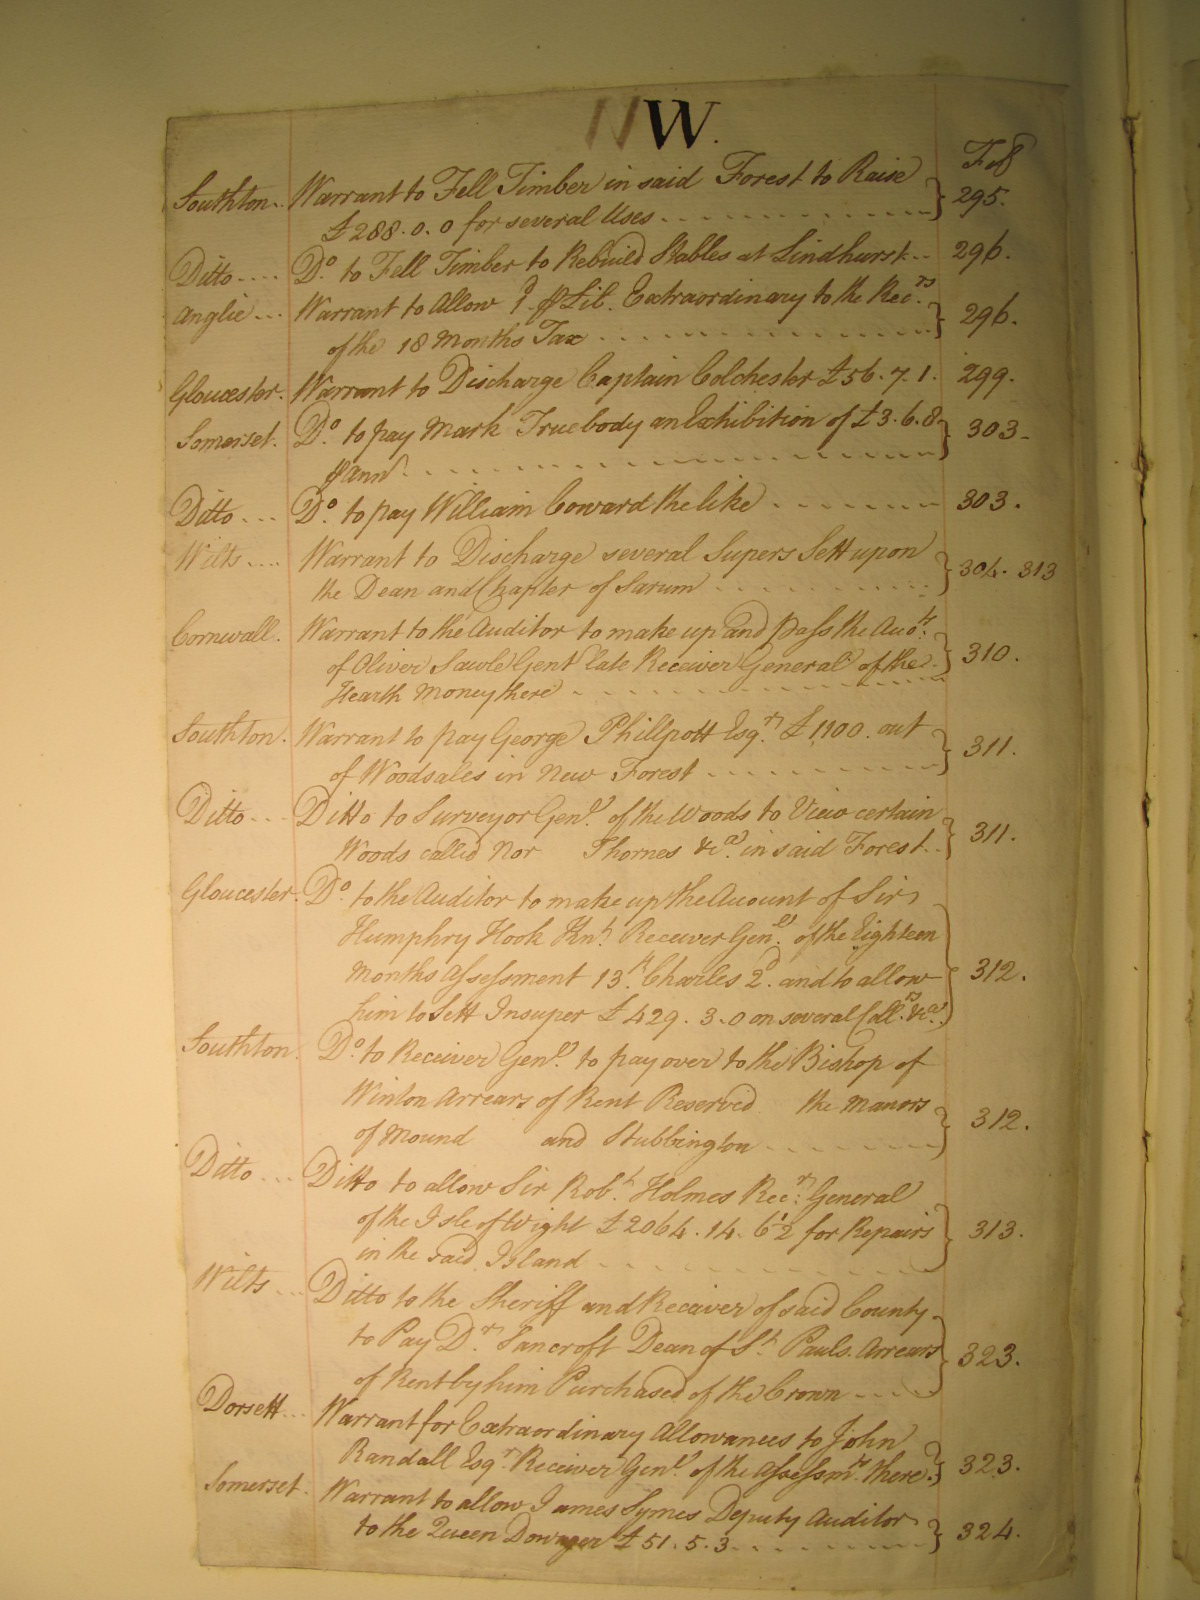 W.
Fol
Southton.. Warrant to Fell Timber in said Forest to Raise
£288.0.0 for several Uses 295.
Ditto.... Do. to Fell Timber to Rebuild Stables at Lindhurst... 296.
Anglie... Warrant to Allow 1d. ⅌ Lib. Extraordinary to the Recrs.
of the 18 Months Tax 296.
Gloucester. Warrant to Discharge Captain Colchester £56.7.1. 299.
Somerset. Do. to pay Mark Truebody an Exhibition of £3.6.8
⅌ Ann 303.
Ditto... Do. to pay William Coward the like 303.
Wilts.... Warrant to Discharge several Supers Sett upon
the Dean and Chapter of Sarum 304. 313
Cornwall. Warrant to the Auditor to make up and pass the Acct.
of Oliver Sawle Gent late Receiver General of the
Hearth Money there 310.
Southton. Warrant to pay George Phillpott Esqr. £1100. out
of Woodsales in New Forest 311.
Ditto... Ditto to Surveyor Genl. of the Woods to View certain
Woods called Nor Thornes &ca. in said Forest.. 311.
Gloucester. Do. to the Auditor to make up the Account of Sir
Humphry Hook Knt. Receiver Genl. of the Eighteen
Months Assessment 13th. Charles 2d. and to allow
him to Sett Insuper £429.3.0 on several Collrs. &ca. 312.
Southton. Do. to Receiver Genl. to pay over to the Bishop of
Winton Arrears of Rent Reserved the Manors
of Mound and Stubbington 312.
Ditto... Ditto to allow Sir Robt. Holmes Recr. General
of the Isle of Wight £2064.14.6½ for Repairs
in the said Island 313.
Wilts... Ditto to the Sheriff and Receiver of said County
to Pay Dr. Sancroft Dean of St. Pauls Arrears
of Rent by him Purchased of the Crown 323.
Dorsett... Warrant for Extraordinary Allowances to John
Randall Esqr. Receiver Genl. of the Assessmts. there. 323.
Somerset. Warrant to allow James Symes Deputy Auditor
to the Queen Dowager £51.5.3 324.